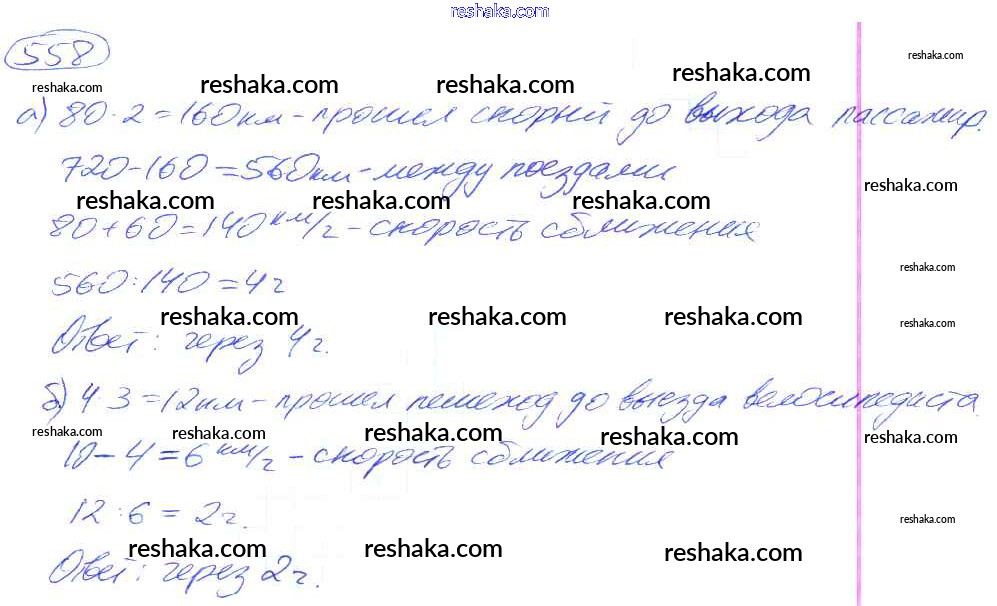 reshaka.com
558
reshaka.com reshaka.com reshaka.com reshaka.com reshaka.com
а) 80·2=160км-прошел скорый до выхода пассажир.
720-160=560км-между поездами
reshaka.com reshaka.com reshaka.com reshaka.com
80+60=140км/ч-скорость сближения
reshaka.com
560:140=4ч
reshaka.com reshaka.com reshaka.com reshaka.com
Ответ: через 4ч.
б) 4·3=12км-прошел пешеход до выезда велосипедиста
reshaka.com reshaka.com reshaka.com reshaka.com reshaka.com
10-4=6км/ч-скорость сближения
12:6=2ч.
reshaka.com
reshaka.com reshaka.com reshaka.com
Ответ: через 2ч.